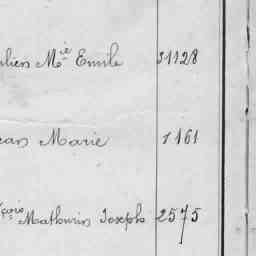 ulien M.ie Emile 31128
ean Marie 1161
çois Mathurin Joseph 2575